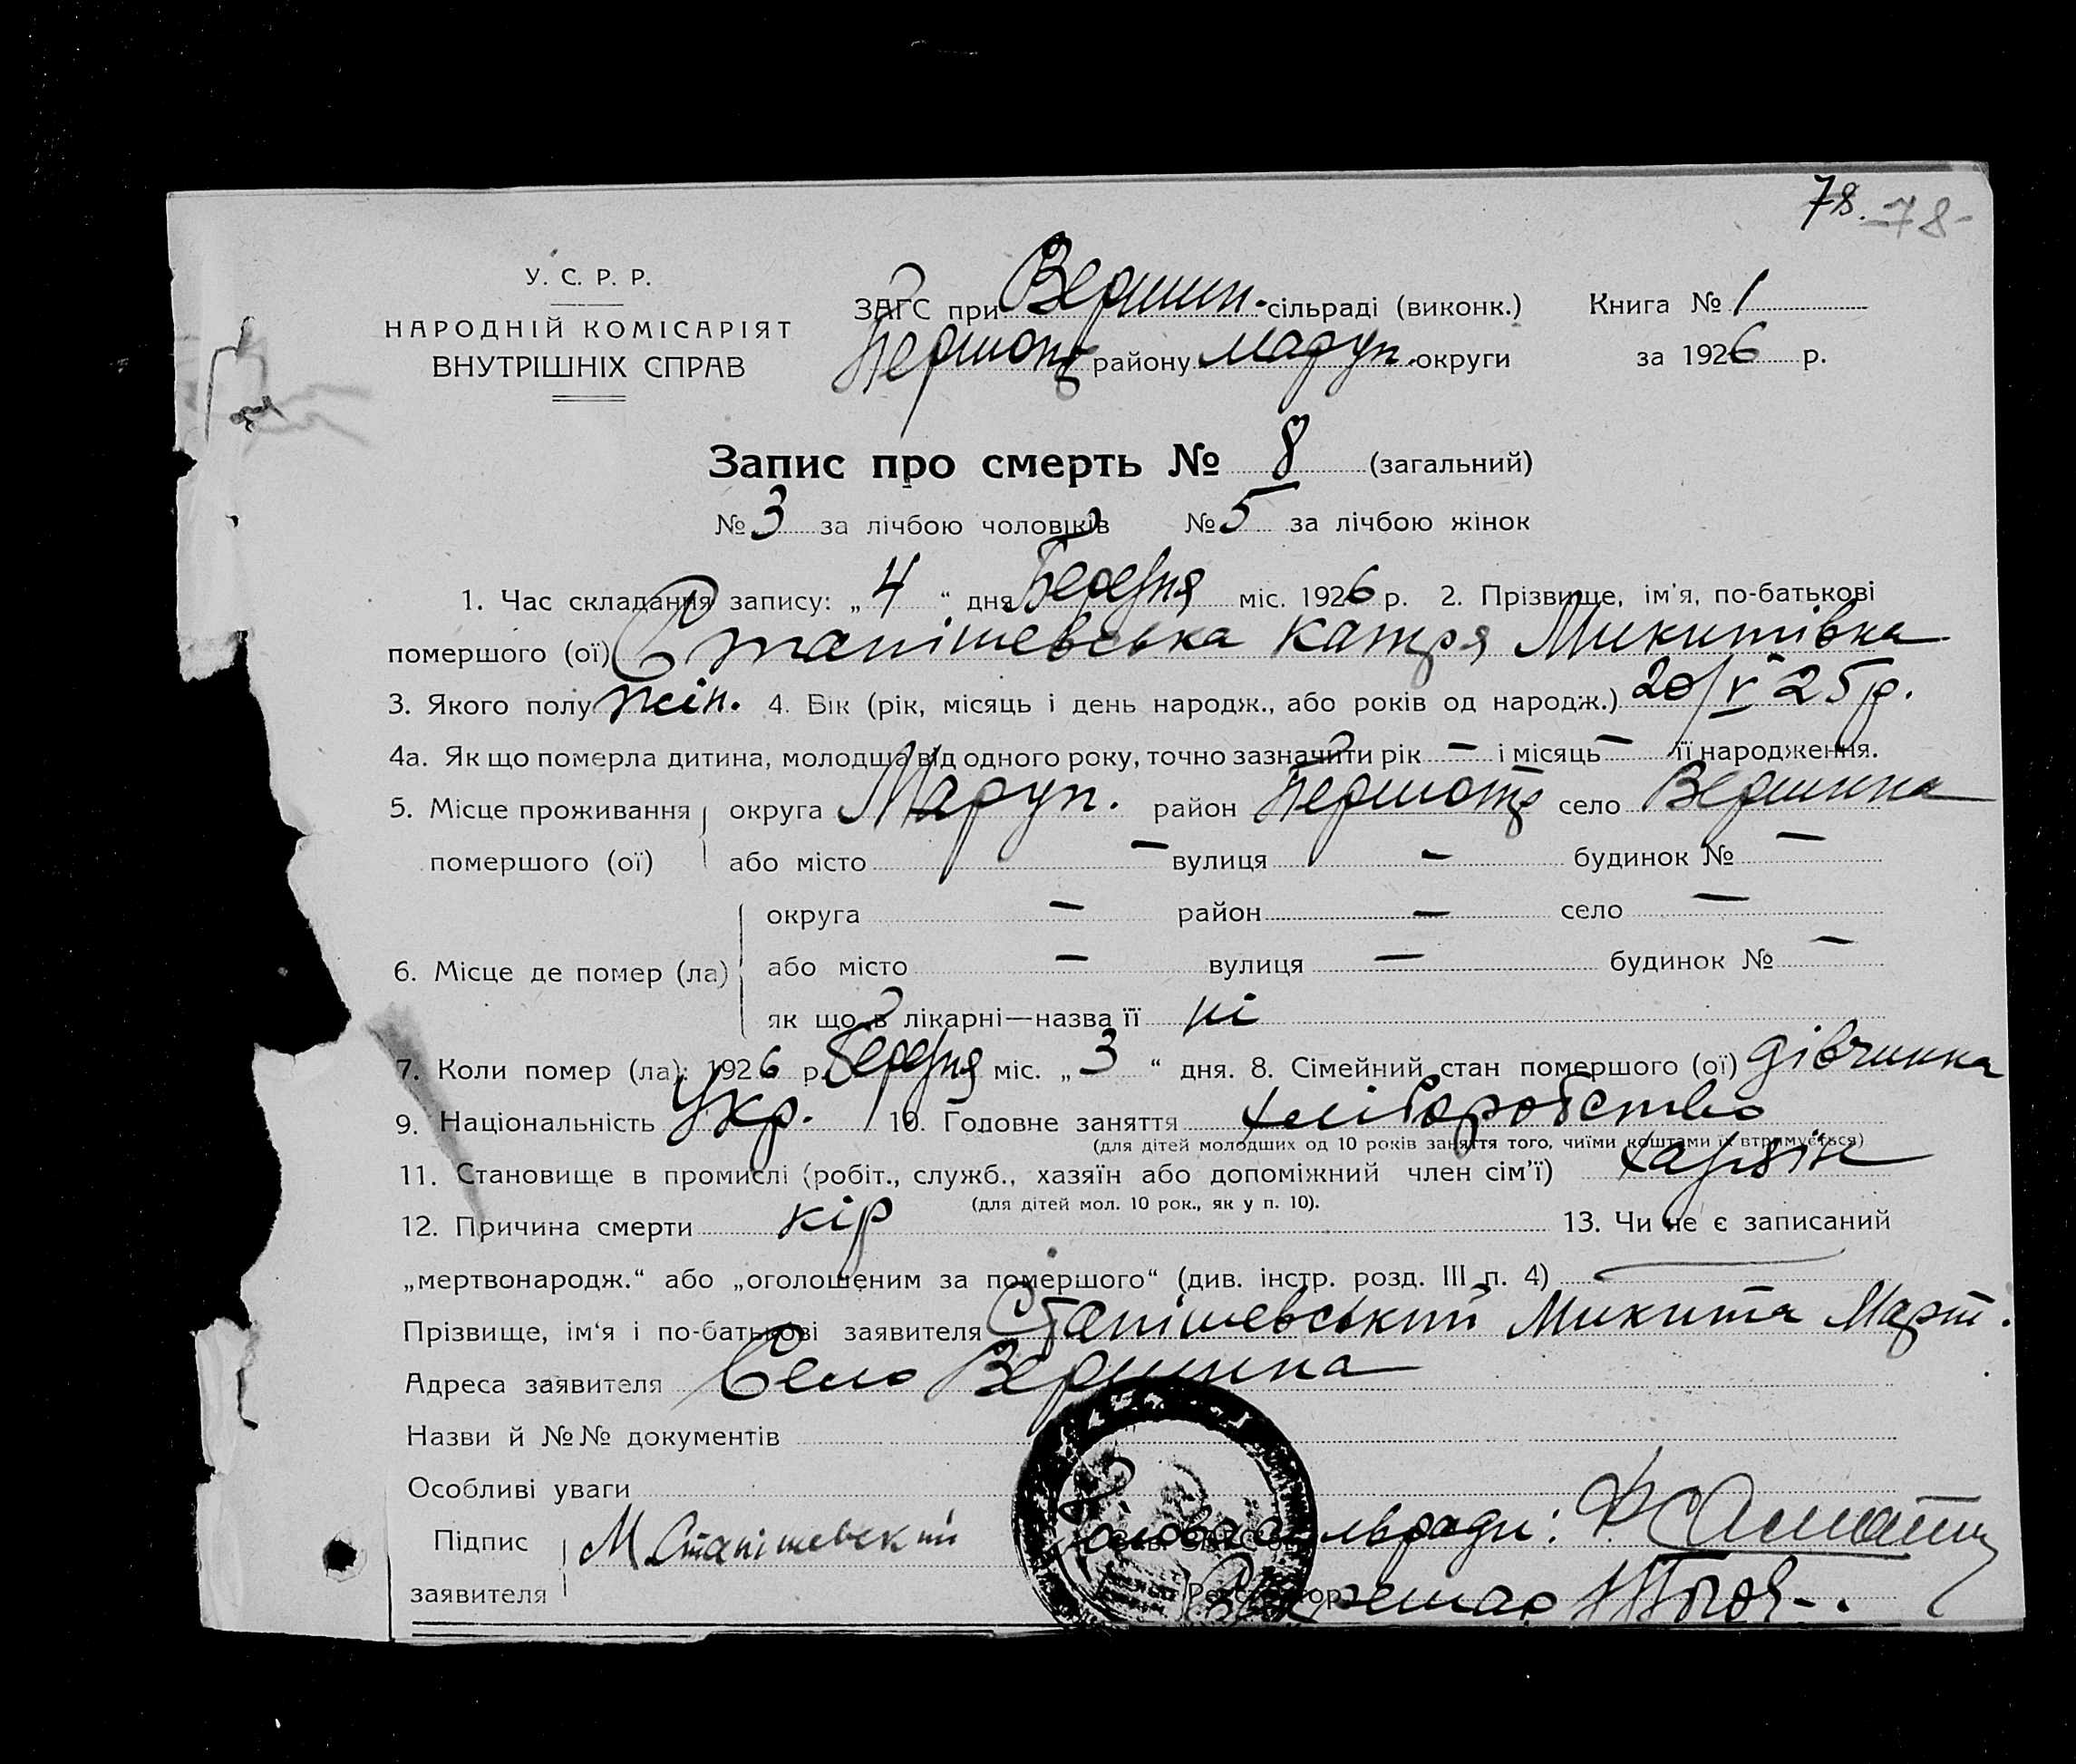 78. 78-
У. С. Р. Р.
НАРОДНІЙ КОМІСАРІЯТ
ВНУТРІШНІХ СПРАВ
ЗАГС при Вершин. сільраді (виконк.) Книга № 1
району Маруп. округи за 1926 р.
Запис про смерть № 8 (загальний)
№ 3 за лічбою чоловіків № 5 за лічбою жінок
1. Час складання запису: „ 4 “ дня Березня міс. 1926 р. 2. Прізвище, ім'я, по-батькові
помершого (ої) Станішевська Катря Микитівна
3. Якого полу жін. 4. Вік (рік, місяць і день народж., або років од народж.) 20/V 25 р.
4а. Як що померла дитина, молодща від одного року, точно зазначити рік — і місяць — її народження.
5. Місце проживання округа Маруп. район село Вершина
помершого (ої) або місто — вулиця — будинок № —
округа — район — село —
6. Місце де помер (ла) або місто — вулиця — будинок № —
як що в лікарні—назва її ні
7. Коли помер (ла): 1926 р. Березня міс. „ 3 “ дня. 8. Сімейний стан помершого (ої) дівчинка
9. Національність Укр. 10. Годовне заняття хліборобство
(для дітей молодших од 10 років заняття того, чиїми коштами їх втримується)
11. Становище в промислі (робіт., служб., хазяїн або допоміжний член сім'ї) хазяїн
(для дітей мол. 10 рок., як у п. 10).
12. Причина смерти кір 13. Чи не є записаний
„мертвонародж.“ або „оголошеним за помершого“ (див. інстр. розд. III п. 4) —
Прізвище, ім'я і по-батькові заявителя Станішевський Микита Март.
Адреса заявителя Село Вершина
Назви й №№ документів
Особливі уваги
Підпис М. Станішевский Голова сільради:
заявителя Секретар